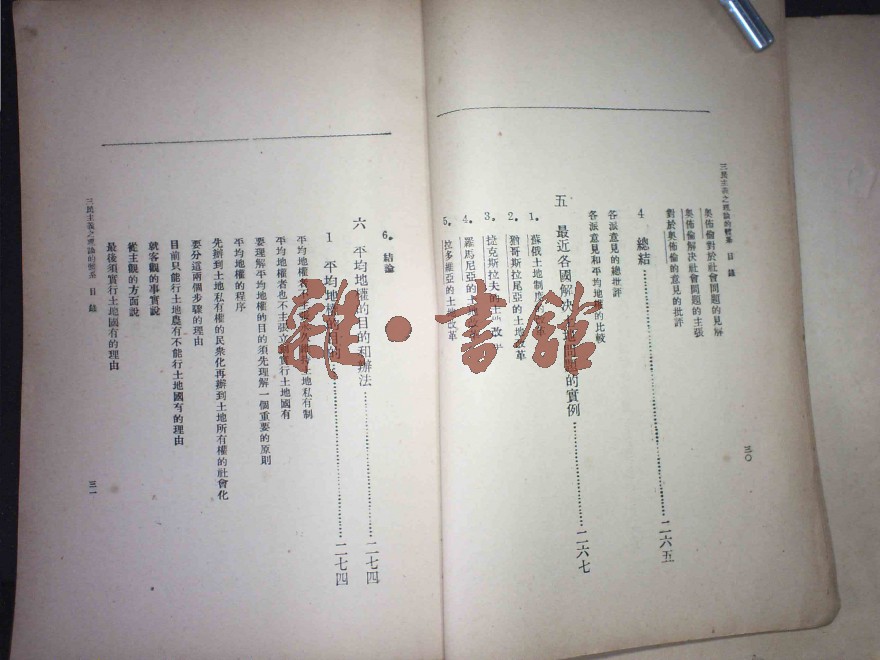 三民主義之理論的體系 目錄
奧佈倫對於社會問題的見解
奧佈倫解決社會問題的主張
對於奧佈倫的意見的批評
4 總結…………二六五
各派意見的總批評
各派意見和平均地權的比較
五 最近各國解決 的實例…………二六七
1. 蘇俄土地制度
2. 猶哥斯拉尾亞的土地改革
3. 捷克斯拉夫的土地改革
4. 羅馬尼亞的土地
5. 拉多維亞的土地改革
三〇
6. 結論
六 平均地權的目的和辦法…………二七四
1 平均地權的目的…………二七四
平均地權者 土地私有制
平均地權者也不主張立 實行土地國有
要理解平均地權的目的須先理解一個重要的原則
平均地權的程序
先辦到土地私有權的民衆化再辦到土地所有權的社會化
要分這兩個步驟的理由
目前只能行土地農有不能行土地國有的理由
就客觀的事實說
從主觀的方面說
最後須實行土地國有的理由
三民主義之理論的體系 目錄
三一
雜·書館